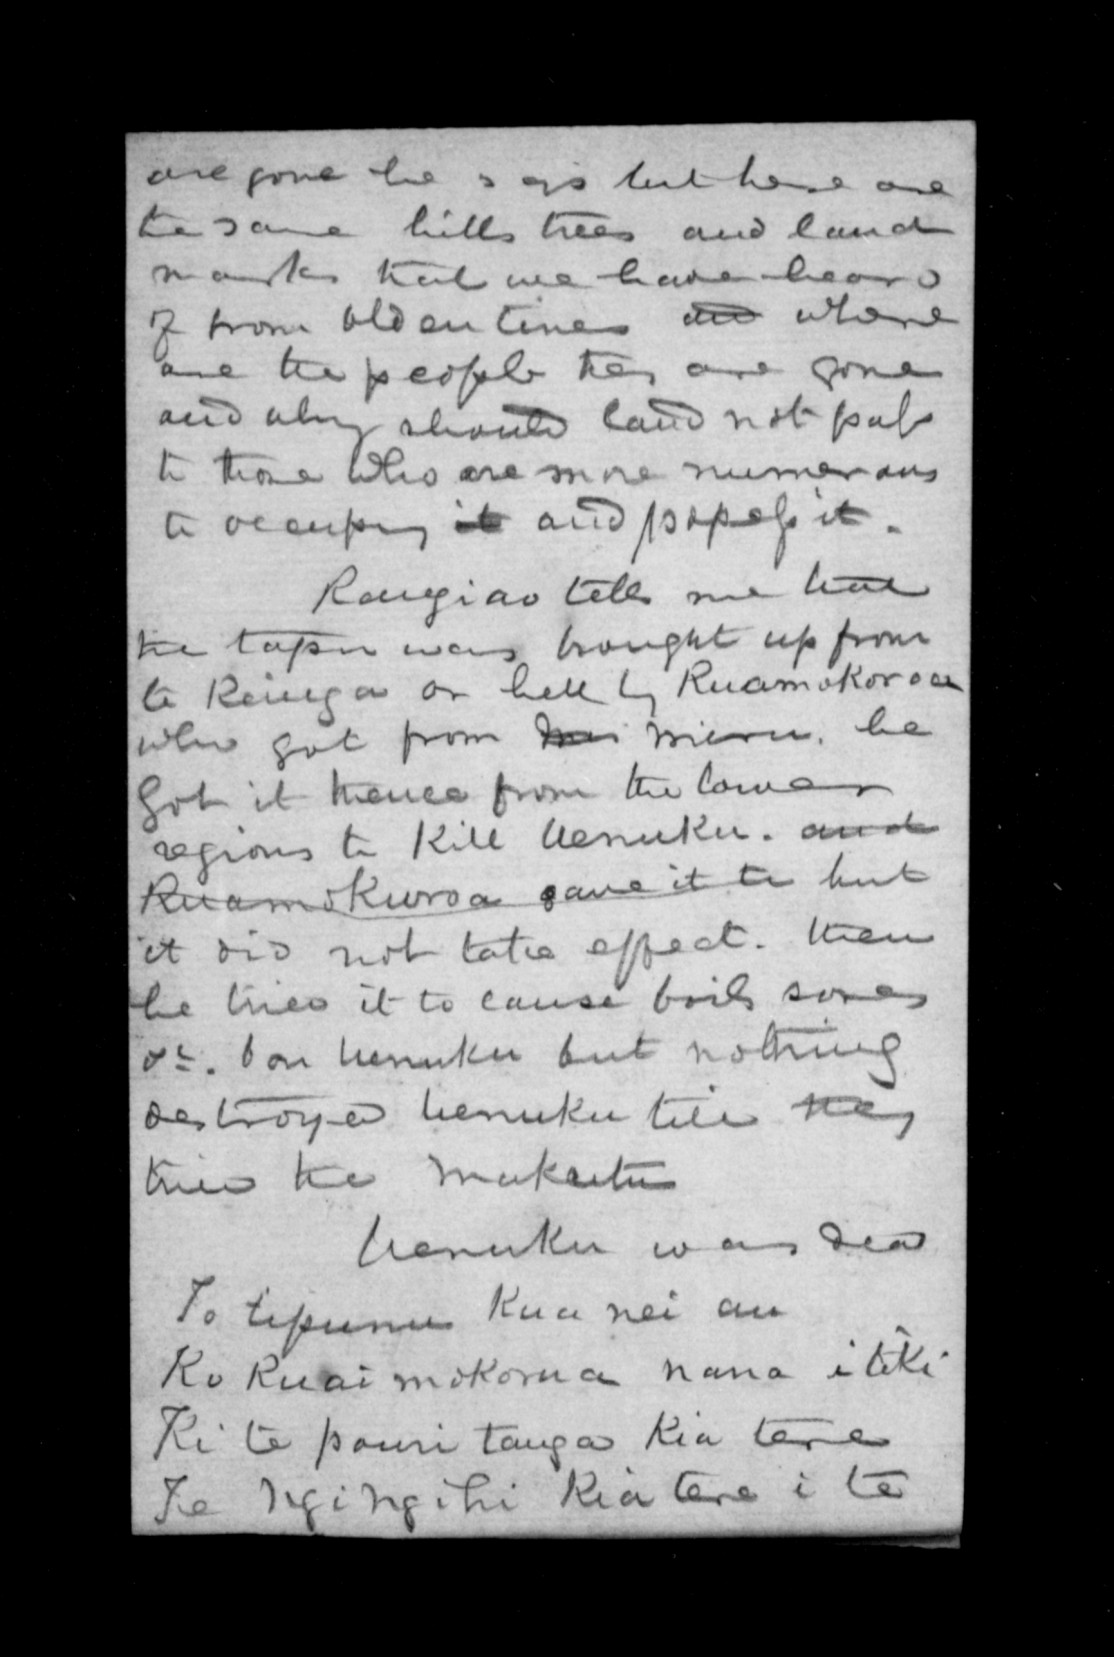 are gone he says but here are
the same hills trees and land
marks that we have heard
of from olden times and where
are the people they are gone
and why should land not pass
to those who are more numerous
to occupy it and possess it.
Rangiao tells me that
the tapu was brought up from
te Reinga or hell by Ruamokoroa
who got from Miru. he
got it thence from the lower
regions to kill Uenuku. and
Ruamokuroa gave it to but
it did not take effect. then
he tried it to cause boils sores
&c. on Uenuku but nothing
destroyed Uenuku till they
tried the Makutu
Uenuku was dead
To tipuna Kua nei au
Ko Ruaimokorua nana i tiki
Ki te pouri tanga Kia tere
Te Ngingihi Kia tere i te